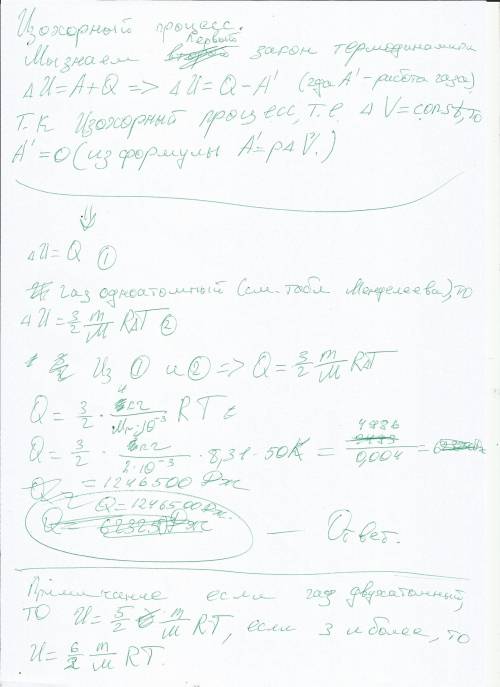 Изохорный процесс.
Первый
Мы знаем второй закон термодинамики
ΔU=A+Q => ΔU=Q-A' (где A'-работа газа)
Т.к Изохорный процесс, т.е. ΔV=const, то
A'=0 (из формулы A'=pΔV.)
⇓
ΔU=Q ①
газ одноатомный (см. табл Менделеева), то
ΔU=3/2 m/M RΔT ②
Из ① и ② => Q=3/2 m/M RΔT
Q=3/2 · кг/M·10⁻³ RT
Q=3/2 · кг/2·10⁻³ · 8,31·50K = 4986/0,004 =
= 1246500 Дж
Q=1246500 Дж.
Q=623250 Дж — Ответ.
Примечание если газ двухатомный,
то U=5/2 m/M RT, если 3 и более, то
U=6/2 m/M RT.